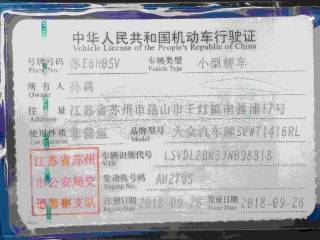 中华人民共和国机动车行驶证
Vehicle License of the People's Republic of China
号牌号码 苏E6H05V 车辆类型 小型轿车
Plate No. Vehicle Type
所有人 孙
Owner
住址 江苏省苏州市昆山市千灯镇南 浦 7号
Address
使用性质 非营运 品牌型号 大众汽车牌SVW71416RL
Use Character Model
江苏省苏州
市公安局交
通警察支队
车辆识别代号
VIN
发动机号码
Engine No.
注册日期 2018-09-26 发证日期 2018-09-26
Register Date Issue Date